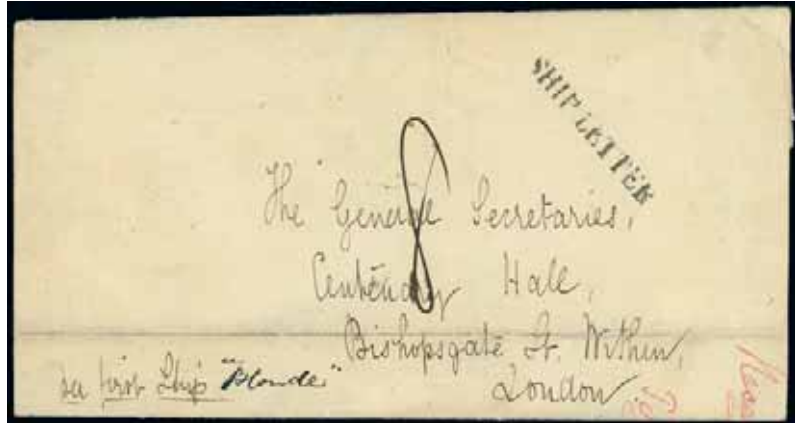 SHIP LETTER
8
The General Secretaries,
Centenary Hall,
Bishopsgate St. Within,
London
first Ship "Blonde"